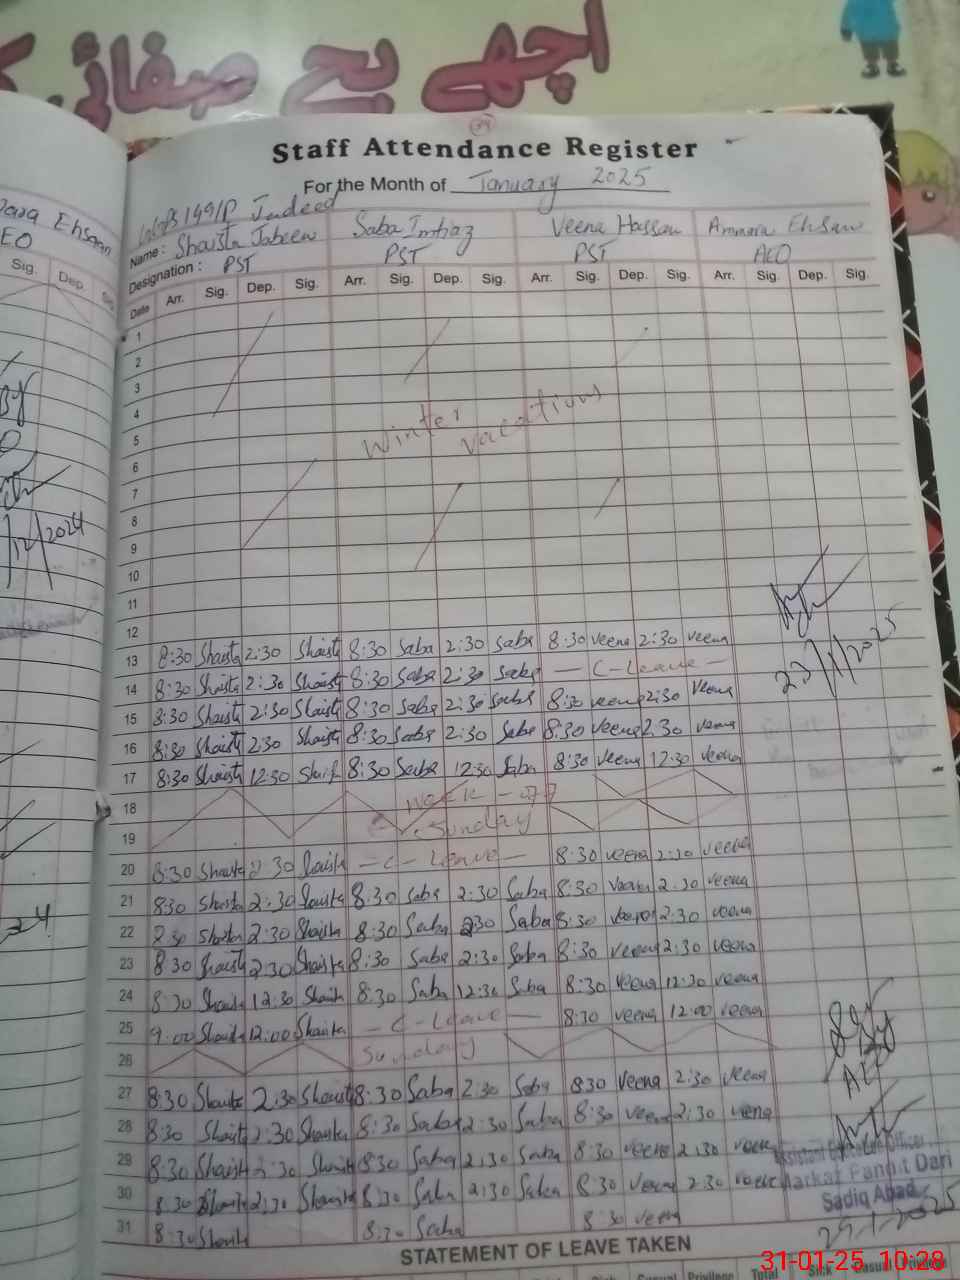 اچھے بچے صفائی
Staff Attendance Register
For the Month of January 2025
149/P Jadeed
Name: Shaista Jabeen Saba Imtiaz Veena Hassan Ammara Ehsan
Designation: PST PST PST AEO
Date Arr. Sig. Dep. Sig. Arr. Sig. Dep. Sig. Arr. Sig. Dep. Sig. Arr. Sig. Dep. Sig.
1
2
3
4
5 Winter Vacations
6
7
8
9
10
11
12
13 8:30 Shaista 2:30 Shaista 8:30 Saba 2:30 Saba 8:30 veena 2:30 veena
14 8:30 Shaista 2:30 Shaista 8:30 Saba 2:30 Saba - C - Leave -
15 8:30 Shaista 2:30 Shaista 8:30 Saba 2:30 Saba 8:30 veena 2:30 veena
16 8:30 Shaista 2:30 Shaista 8:30 Saba 2:30 Saba 8:30 veena 2:30 veena
17 8:30 Shaista 12:30 Shaista 8:30 Saba 12:30 Saba 8:30 veena 12:30 veena
18 Week - off
19 Sunday
20 8:30 Shaista 2:30 Shaista - C - Leave - 8:30 veena 2:30 veena
21 8:30 Shaista 2:30 Shaista 8:30 Saba 2:30 Saba 8:30 veena 2:30 veena
22 Shaista 2:30 Shaista 8:30 Saba 2:30 Saba 8:30 veena 2:30 veena
23 8:30 Shaista 2:30 Shaista 8:30 Saba 2:30 Saba 8:30 veena 2:30 veena
24 8:30 Shaista 12:30 Shaista 8:30 Saba 12:30 Saba 8:30 veena 12:30 veena
25 9:00 Shaista 12:00 Shaista - C - Leave - 8:30 veena 12:00 veena
26 Sunday
27 8:30 Shaista 2:30 Shaista 8:30 Saba 2:30 Saba 8:30 veena 2:30 veena
28 8:30 Shaista 2:30 Shaista 8:30 Saba 2:30 Saba 8:30 veena 2:30 veena
29 8:30 Shaista 2:30 Shaista 8:30 Saba 2:30 Saba 8:30 veena 2:30 veena
30 8:30 Shaista 2:30 Shaista 8:30 Saba 2:30 Saba 8:30 veena 2:30 veena
31 8:30 Shaista 8:30 Saba 8:30 veena
23/1/2025
AEO
Markaz Pandit Dari
Sadiq Abad
STATEMENT OF LEAVE TAKEN
Sick Casual Privilege Total Sick Casual Privilege
31-01-25 10:28
Ehsan
EO
Sig. Dep. Sig.
/12/2024